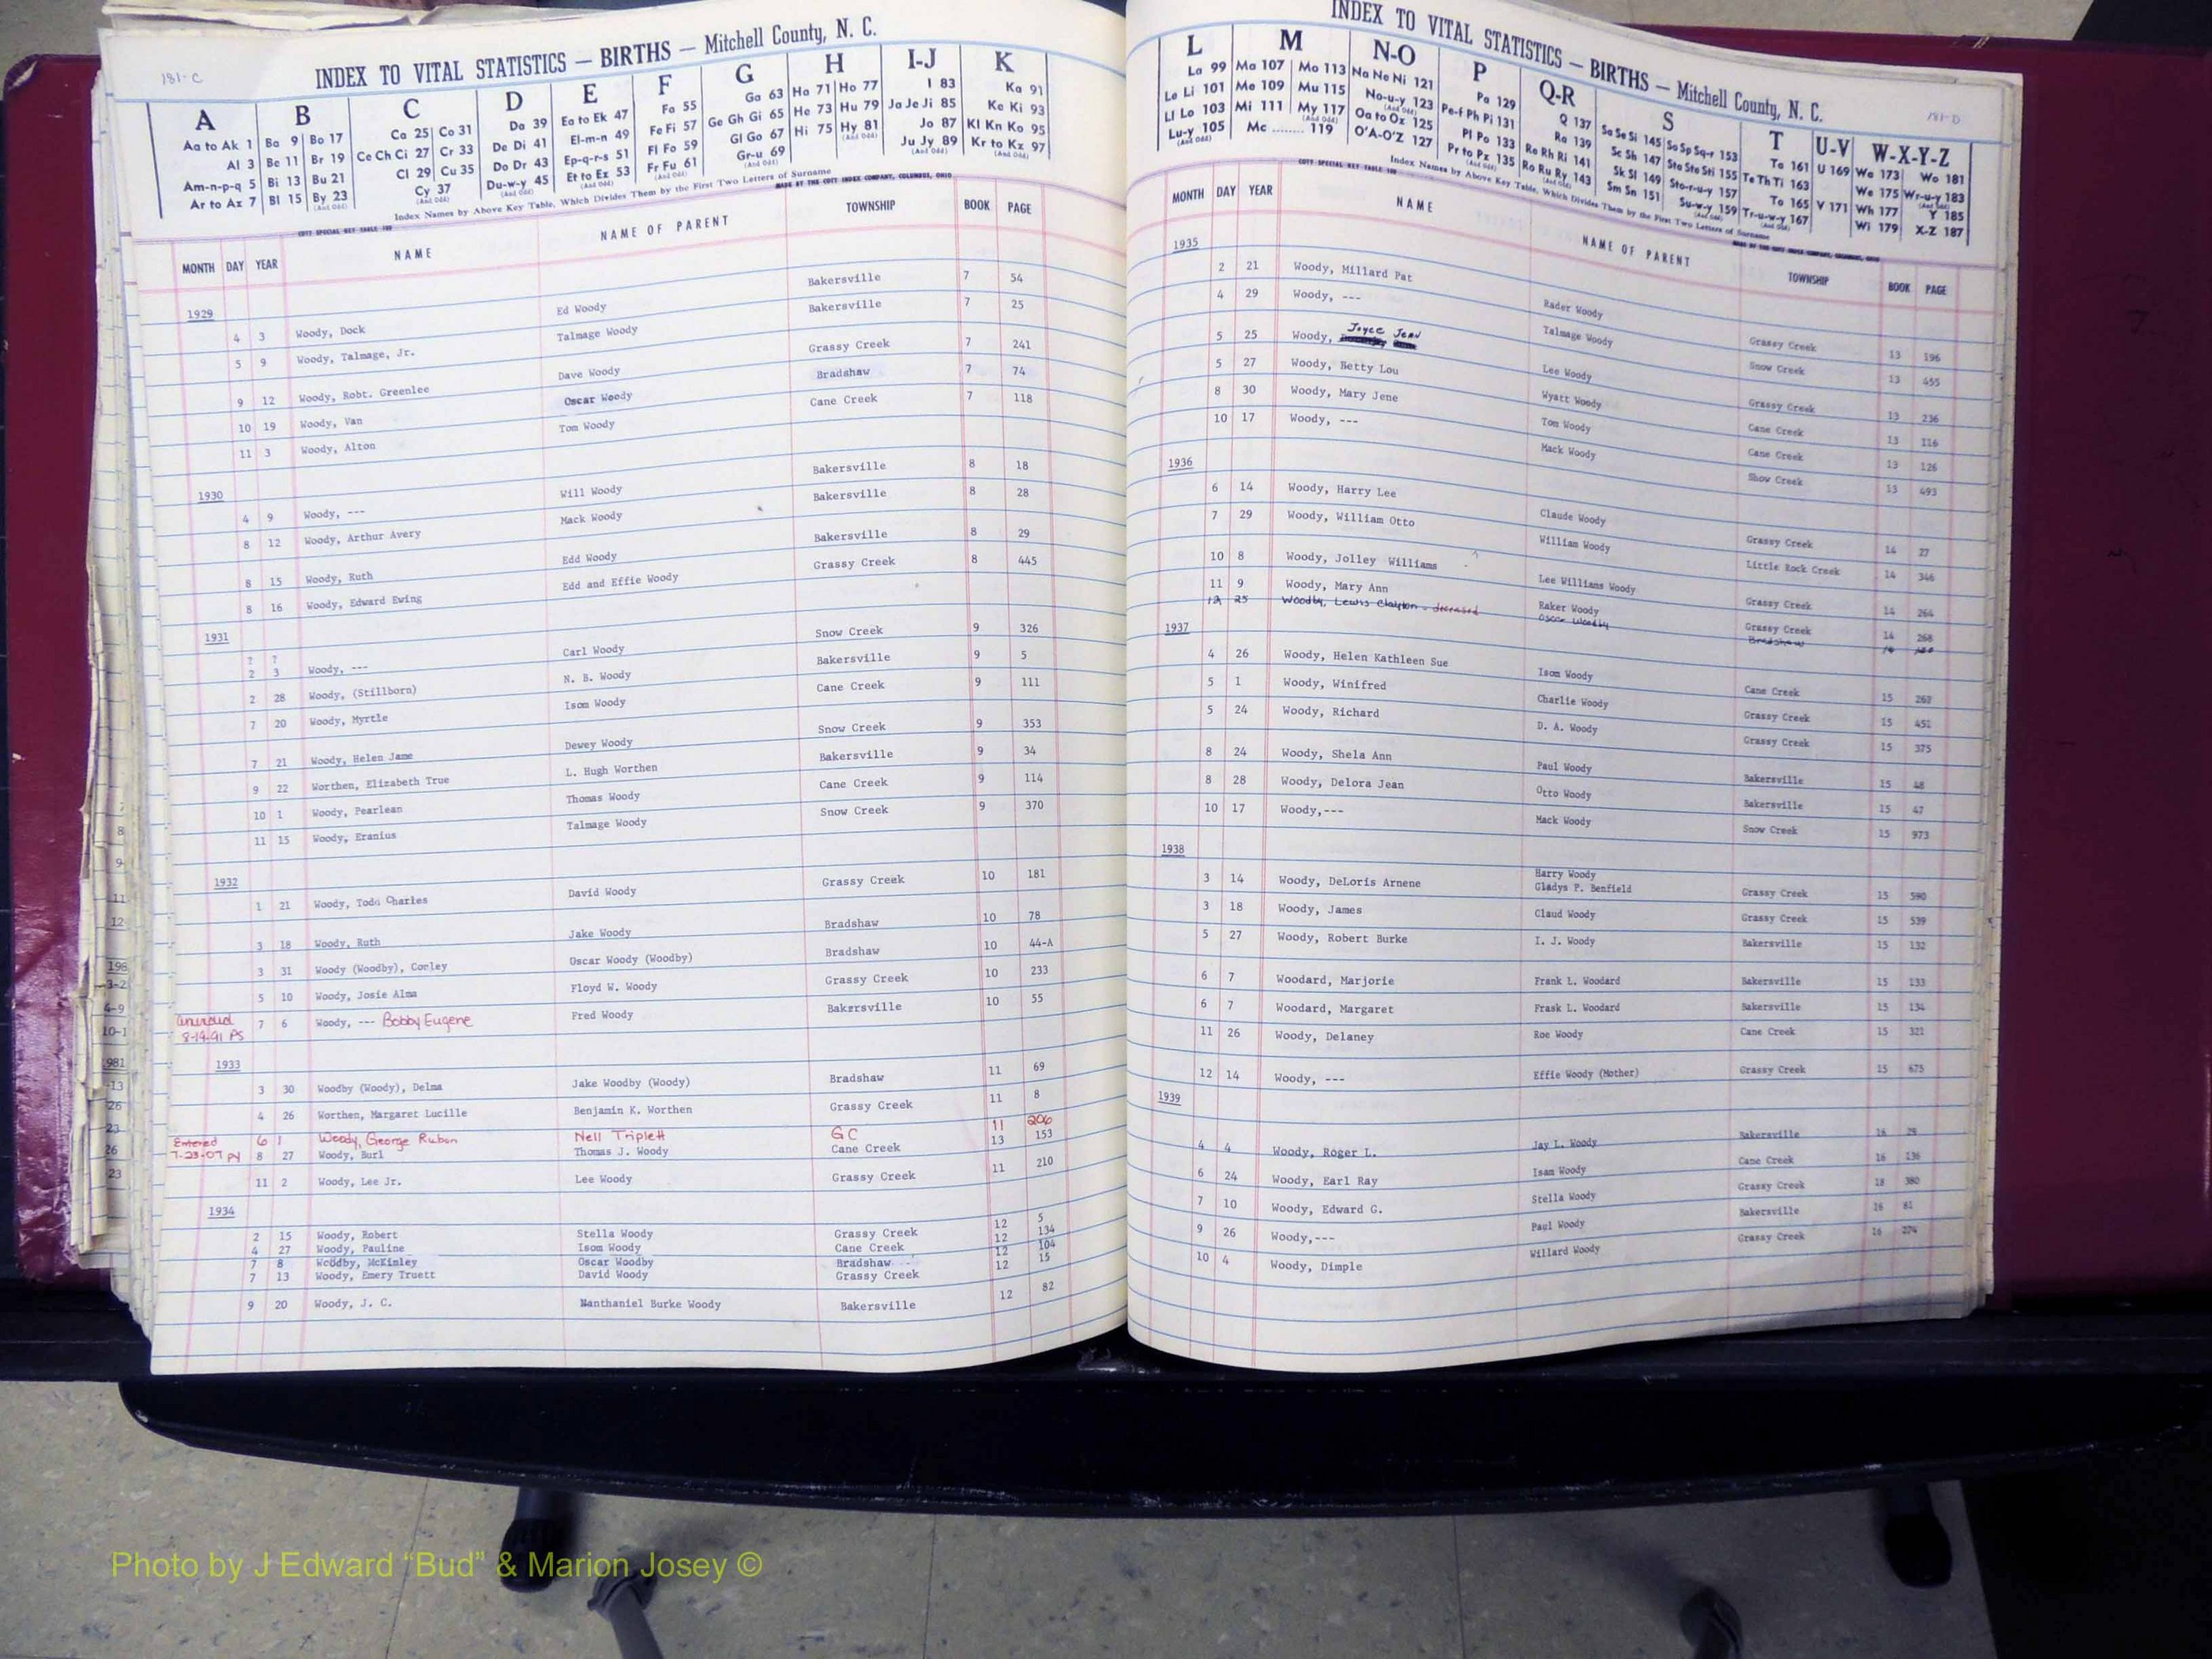 181-C
INDEX TO VITAL STATISTICS — BIRTHS — Mitchell County, N. C.
A B C D E F G H I-J K
Aa to Ak 1 Ba 9 Bo 17 Ca 25 Co 31 Da 39 Ea to Ek 47 Fa 55 Ga 63 Ha 71 Ho 77 I 83 Ka 91
Al 3 Be 11 Br 19 Ce Ch Ci 27 Cr 33 De Di 41 El-m-n 49 Fe Fi 57 Ge Gh Gi 65 He 73 Hu 79 Ja Je Ji 85 Ke Ki 93
Am-n-p-q 5 Bi 13 Bu 21 Cl 29 Cu 35 Do Dr 43 Ep-q-r-s 51 Fl Fo 59 Gl Go 67 Hi 75 Hy 81 Jo 87 Kl Kn Ko 95
Ar to Az 7 Bl 15 By 23 Cy 37 Du-w-y 45 Et to Ez 53 Fr Fu 61 Gr-u 69 Ju Jy 89 Kr to Kz 97
Index Names by Above Key Table, Which Divides Them by the First Two Letters of Surname
MADE BY THE COTT INDEX COMPANY, COLUMBUS, OHIO
MONTH DAY YEAR NAME NAME OF PARENT TOWNSHIP BOOK PAGE
1929
4 3 Woody, Dock Ed Woody Bakersville 7 54
5 9 Woody, Talmage, Jr. Talmage Woody Bakersville 7 25
9 12 Woody, Robt. Greenlee Dave Woody Grassy Creek 7 241
10 19 Woody, Van Oscar Woody Bradshaw 7 74
11 3 Woody, Alton Tom Woody Cane Creek 7 118
1930
4 9 Woody, --- Will Woody Bakersville 8 18
8 12 Woody, Arthur Avery Mack Woody Bakersville 8 28
8 15 Woody, Ruth Edd Woody Bakersville 8 29
8 16 Woody, Edward Ewing Edd and Effie Woody Grassy Creek 8 445
1931
? ?
2 3 Woody, --- Carl Woody Snow Creek 9 326
2 28 Woody, (Stillborn) N. B. Woody Bakersville 9 5
7 20 Woody, Myrtle Isom Woody Cane Creek 9 111
7 21 Woody, Helen Jame Dewey Woody Snow Creek 9 353
9 22 Worthen, Elizabeth True L. Hugh Worthen Bakersville 9 34
10 1 Woody, Pearlean Thomas Woody Cane Creek 9 114
11 15 Woody, Eranius Talmage Woody Snow Creek 9 370
1932
1 21 Woody, Todd Charles David Woody Grassy Creek 10 181
3 18 Woody, Ruth Jake Woody Bradshaw 10 78
3 31 Woody (Woodby), Conley Oscar Woody (Woodby) Bradshaw 10 44-A
5 10 Woody, Josie Alma Floyd W. Woody Grassy Creek 10 233
7 6 Woody, --- Bobby Eugene Fred Woody Bakersville 10 55
8-19-91 PS
1933
3 30 Woodby (Woody), Delma Jake Woodby (Woody) Bradshaw 11 69
4 26 Worthen, Margaret Lucille Benjamin K. Worthen Grassy Creek 11 8
Entered 6 1 Woody, George Rubon Nell Triplett GC 11 206
7-23-07 8 27 Woody, Burl Thomas J. Woody Cane Creek 13 153
11 2 Woody, Lee Jr. Lee Woody Grassy Creek 11 210
1934
2 15 Woody, Robert Stella Woody Grassy Creek 12 5
4 27 Woody, Pauline Isom Woody Cane Creek 12 134
7 8 Woodby, McKinley Oscar Woodby Bradshaw 12 104
7 13 Woody, Emery Truett David Woody Grassy Creek 12 15
9 20 Woody, J. C. Nanthaniel Burke Woody Bakersville 12 82
INDEX TO VITAL STATISTICS — BIRTHS — Mitchell County, N. C.
181-D
L M N-O P Q-R S T U-V W-X-Y-Z
La 99 Ma 107 Mo 113 Na Ne Ni 121 Pa 129 Q 137 Sa Se Si 145 So Sp Sq-r 153 Ta 161 U 169 Wa 173 Wo 181
Le Li 101 Me 109 Mu 115 No-u-y 123 Pe-f Ph Pi 131 Ra 139 Sc Sh 147 Sta Ste Sti 155 Te Th Ti 163 We 175 Wr-u-y 183
Ll Lo 103 Mi 111 My 117 Oa to Oz 125 Pl Po 133 Re Rh Ri 141 Sk Sl 149 Sto-r-u-y 157 To 165 V 171 Wh 177 Y 185
Lu-y 105 Mc 119 O'A-O'Z 127 Pr to Pz 135 Ro Ru Ry 143 Sm Sn 151 Su-w-y 159 Tr-u-w-y 167 Wi 179 X-Z 187
Index Names by Above Key Table, Which Divides Them by the First Two Letters of Surname
MONTH DAY YEAR NAME NAME OF PARENT TOWNSHIP BOOK PAGE
1935
2 21 Woody, Millard Pat Rader Woody Grassy Creek 13 196
4 29 Woody, --- Talmage Woody Snow Creek 13 455
5 25 Woody, Joyce Jean Lee Woody Grassy Creek 13 236
5 27 Woody, Betty Lou Wyatt Woody Cane Creek 13 116
8 30 Woody, Mary Jene Tom Woody Cane Creek 13 126
10 17 Woody, --- Mack Woody Show Creek 13 493
1936
6 14 Woody, Harry Lee Claude Woody Grassy Creek 14 27
7 29 Woody, William Otto William Woody Little Rock Creek 14 346
10 8 Woody, Jolley Williams Lee Williams Woody Grassy Creek 14 264
11 9 Woody, Mary Ann Raker Woody Grassy Creek 14 268
12 25 Woodby, Lewis Clayton - deceased Oscar Woodby Bradshaw
1937
4 26 Woody, Helen Kathleen Sue Isom Woody Cane Creek 15 262
5 1 Woody, Winifred Charlie Woody Grassy Creek 15 451
5 24 Woody, Richard D. A. Woody Grassy Creek 15 375
8 24 Woody, Shela Ann Paul Woody Bakersville 15 48
8 28 Woody, Delora Jean Otto Woody Bakersville 15 47
10 17 Woody,--- Mack Woody Snow Creek 15 973
1938
3 14 Woody, DeLoris Arnene Harry Woody
Gladys P. Benfield Grassy Creek 15 590
3 18 Woody, James Claud Woody Grassy Creek 15 539
5 27 Woody, Robert Burke I. J. Woody Bakersville 15 132
6 7 Woodard, Marjorie Frank L. Woodard Bakersville 15 133
6 7 Woodard, Margaret Frask L. Woodard Bakersville 15 134
11 26 Woody, Delaney Roe Woody Cane Creek 15 321
12 14 Woody, --- Effie Woody (Mother) Grassy Creek 15 675
1939
4 4 Woody, Roger L. Jay L. Woody Bakersville 16 29
6 24 Woody, Earl Ray Isam Woody Cane Creek 16 136
7 10 Woody, Edward G. Stella Woody Grassy Creek 18 380
9 26 Woody,--- Paul Woody Bakersville 16 81
10 4 Woody, Dimple Willard Woody Grassy Creek 16 274
Photo by J Edward “Bud” & Marion Josey ©